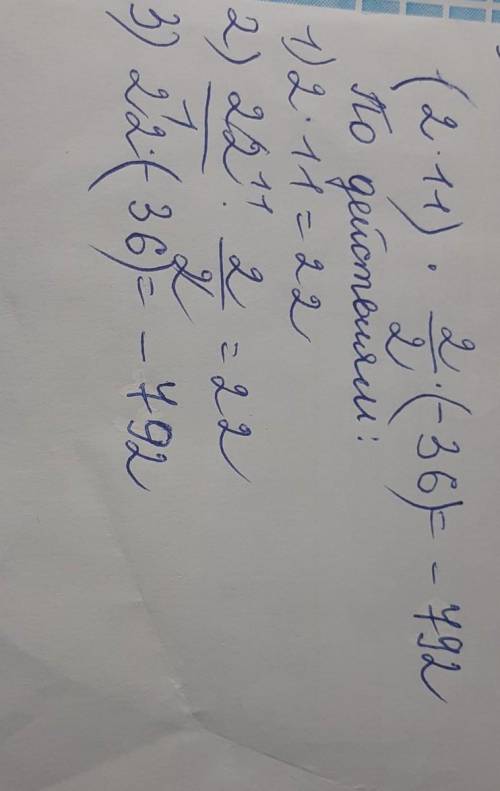 (2 · 11) · 2/2 · (-36) = -792
По действиям:
1) 2 · 11 = 22
2) 22¹¹/1 · 2/2 = 22
3) 22 · (-36) = -792